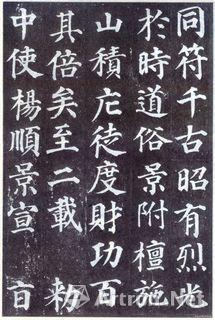 同符千古昭有烈光
於時道俗景附檀施
山積庀徒度財功百
其倍矣至二載 敕
中使楊順景宣 旨
Artron.Net